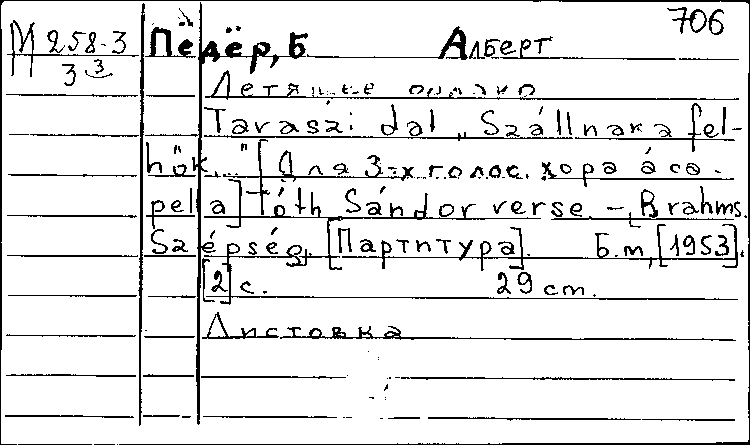 706
М 258-3
3 3
Пёдёр, Б Алберт
Летящее облако
Tavaszi dal „Szállnak a fel-
hök..." [Для 3-х голос. хора a ca-
pella] Tóth Sándor verse. – Brahms.
Szépség. [Партитура]. Б.m, [1953].
[2] с. 29 cm.
Листовка